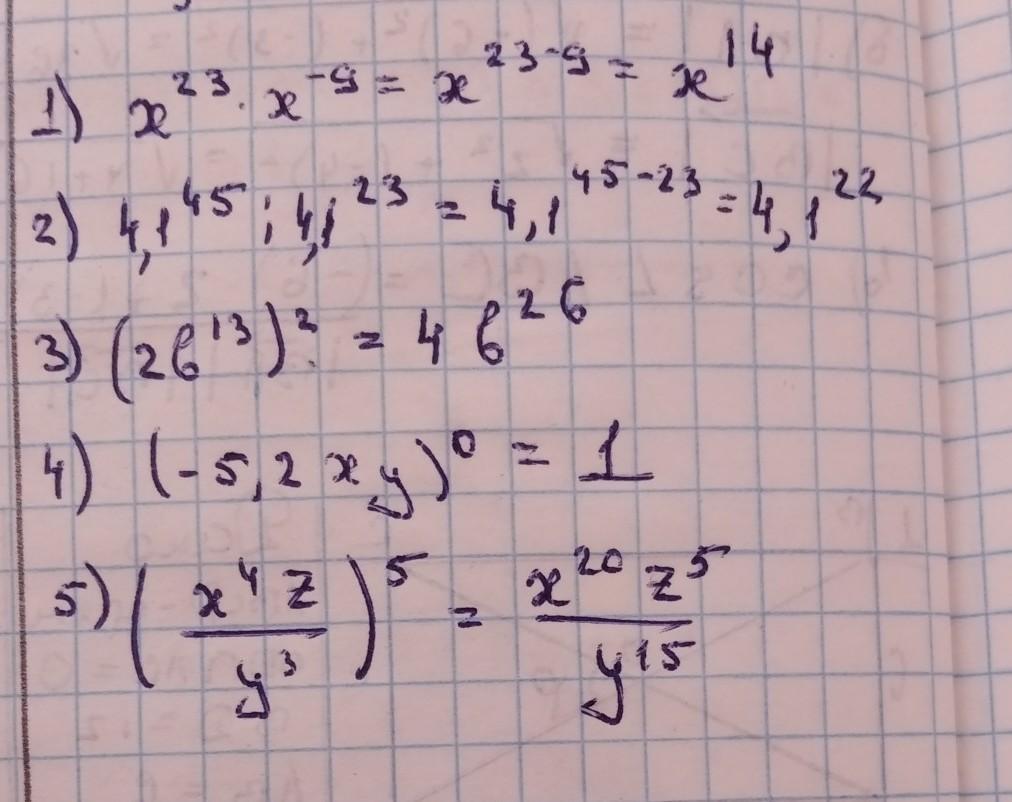 1) x²³ · x⁻⁹ = x²³⁻⁹ = x¹⁴
2) 4,1⁴⁵ : 4,1²³ = 4,1⁴⁵⁻²³ = 4,1²²
3) (2b¹³)² = 4 b²⁶
4) (-5,2 xy)⁰ = 1
5) (x⁴ z / y³)⁵ = x²⁰ z⁵ / y¹⁵